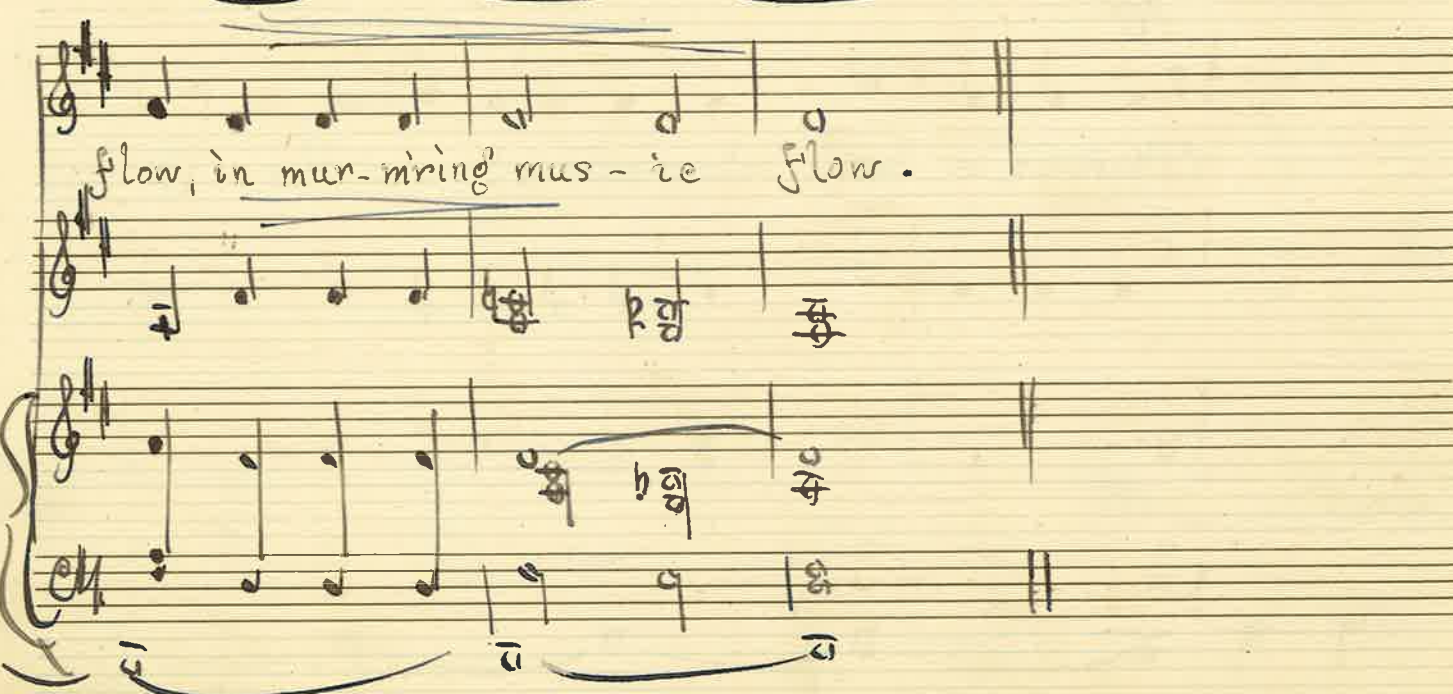 flow, in mur-m'ring mus - ic flow.